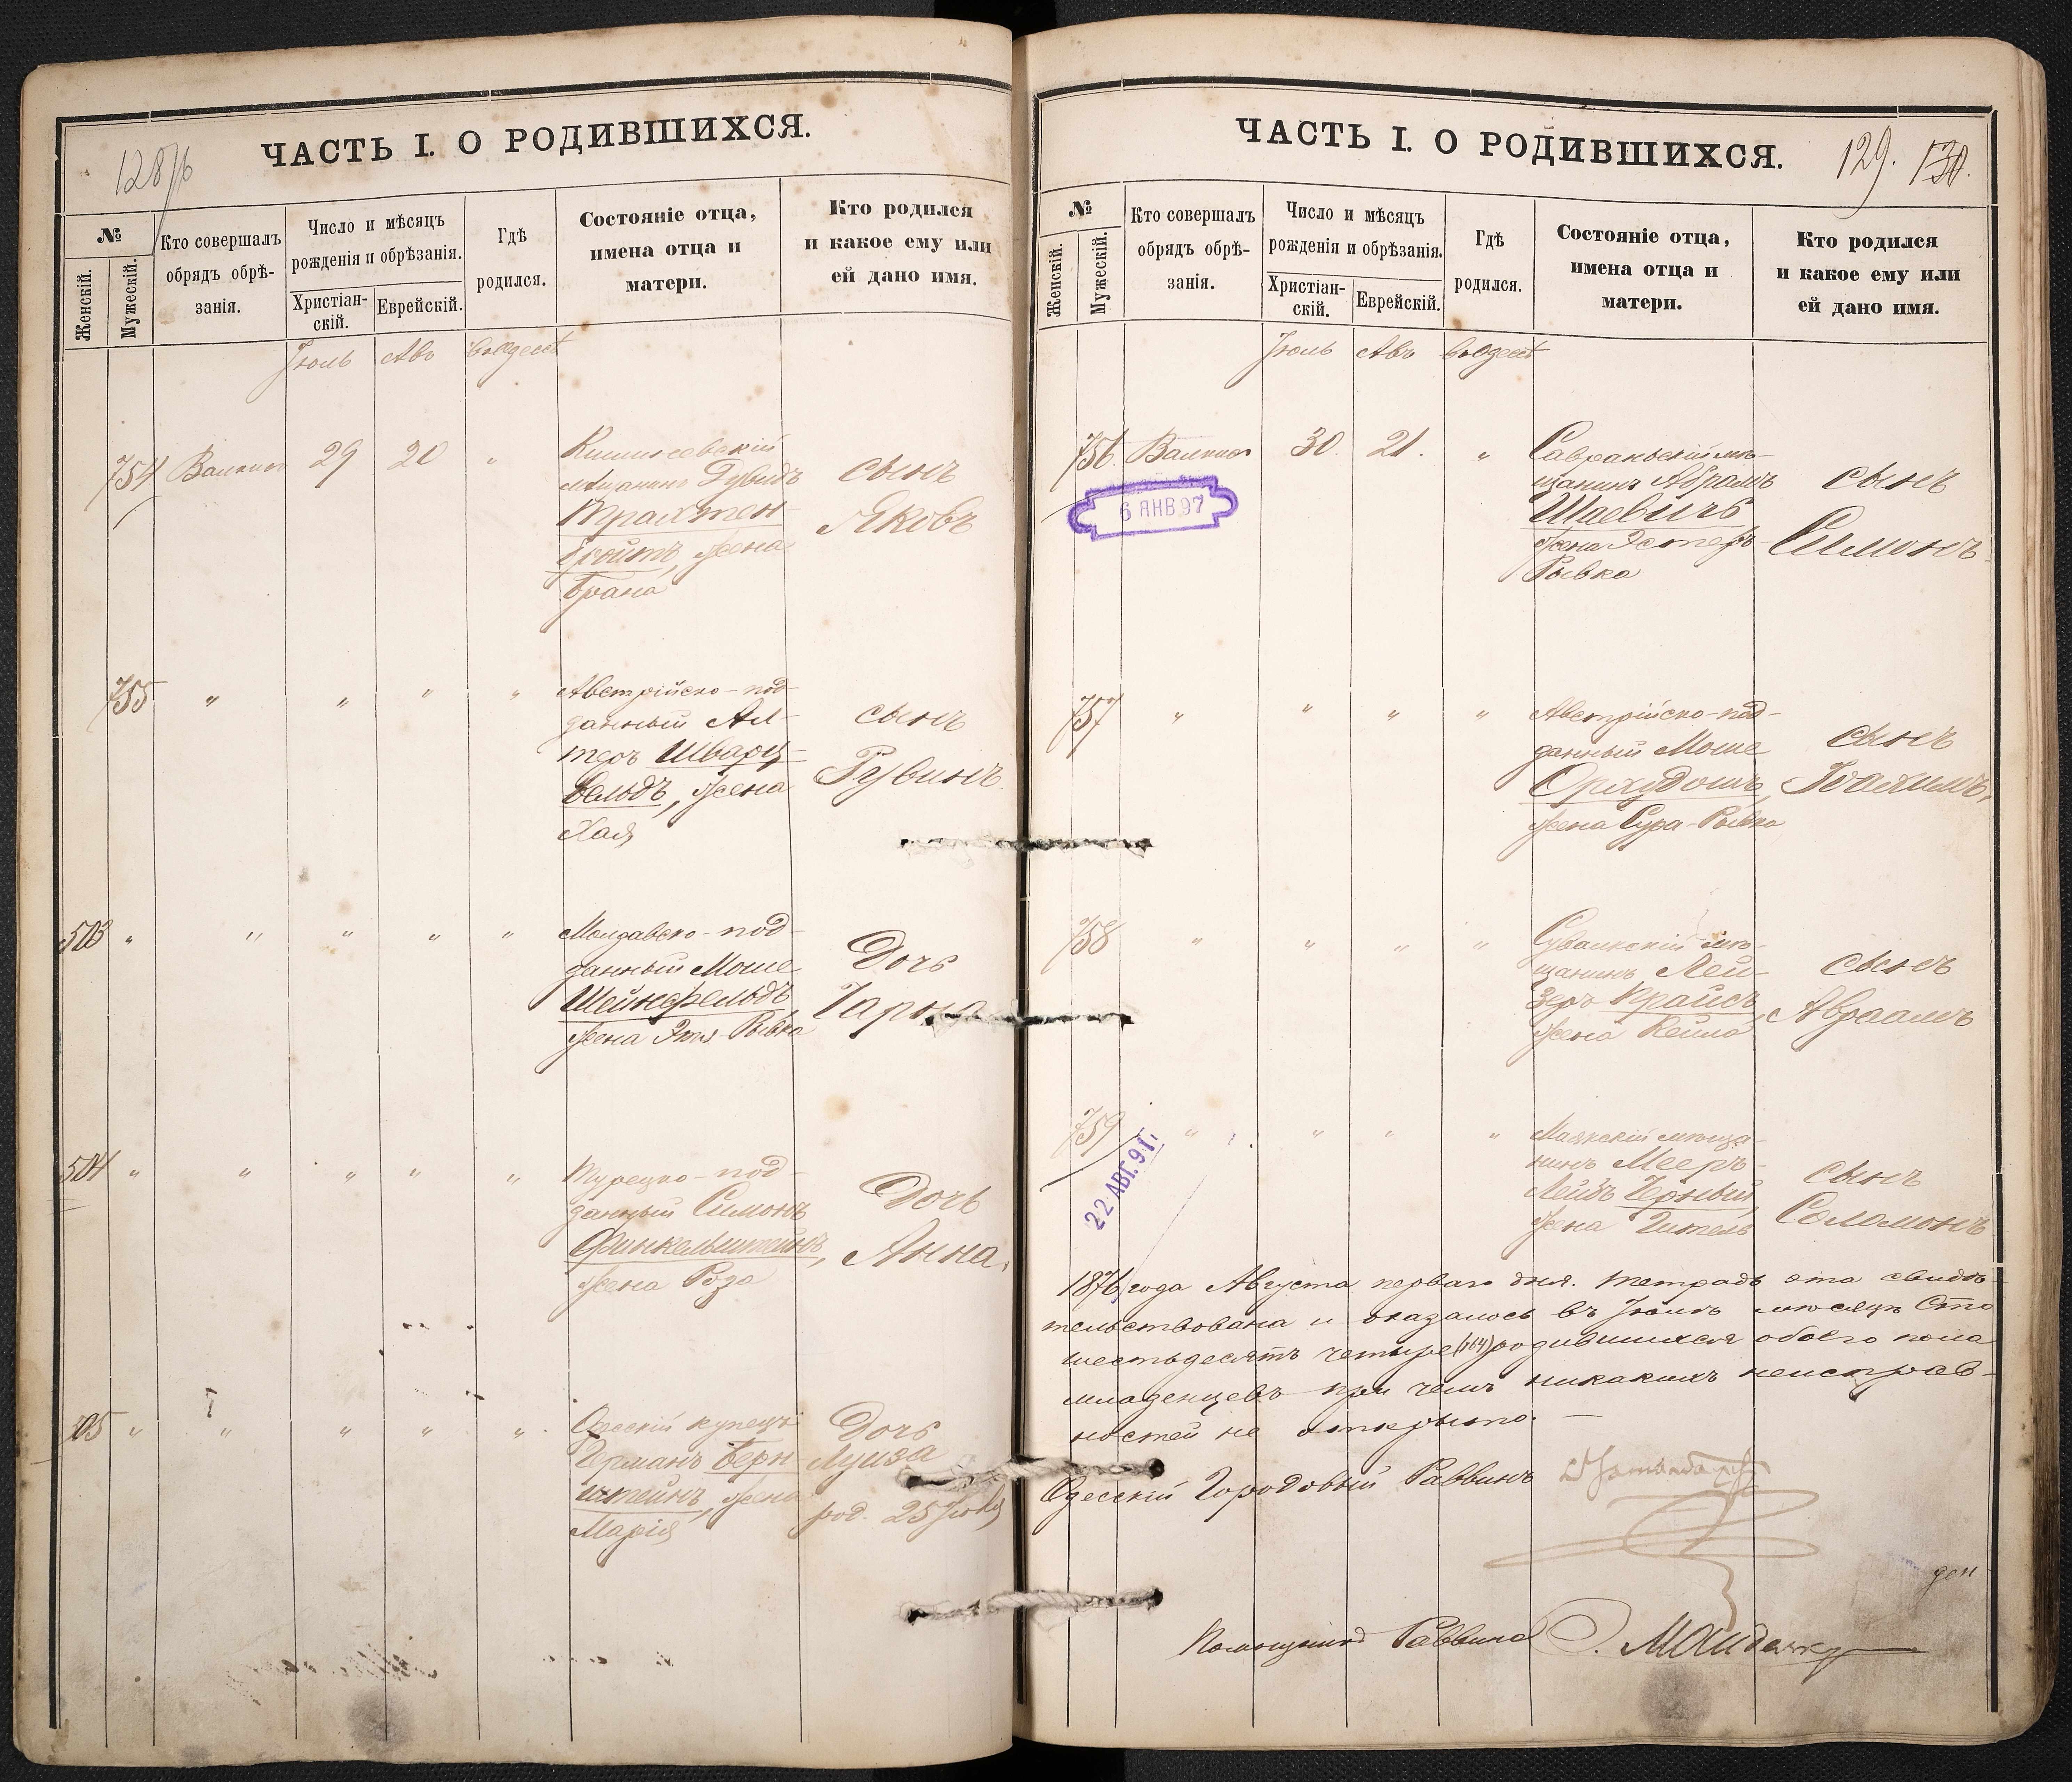 128/б
ЧАСТЬ I. О РОДИВШИХСЯ.
№
Женскій.
Мужескій.
Кто совершалъ
обрядъ обрѣ-
занія.
Число и мѣсяцъ
рожденія и обрѣзанія.
Христіан-
скій.
Еврейскій.
Гдѣ
родился.
Состояніе отца,
имена отца и
матери.
Кто родился
и какое ему или
ей дано имя.
Іюль Авъ Въ Одессѣ
754 29 20 "
Кишиневскій
мѣщанинъ Дувидъ
Трахтен-
бройтъ, жена
Брана
сынъ
Яковъ
755 " " " "
Австрійско-под-
данный Ал-
теръ Шварц-
вельдъ, жена
Хая
сынъ
Рувинъ
503 " " " " "
Молдавско-под-
данный Моше
Шейнфельдъ
жена Этя-Рывка
Дочь
Чарна
504 " " " " "
Турецко-под-
данный Симонъ
Финкельштейнъ,
жена Роза
Дочь
Анна.
505 " " " " "
Одесскій купецъ
Германъ Берн
штейнъ, жена
Марія
Дочь
Луиза
род. 25 Іюля
ЧАСТЬ I. О РОДИВШИХСЯ.
129. 130.
№
Женскій.
Мужескій.
Кто совершалъ
обрядъ обрѣ-
занія.
Число и мѣсяцъ
рожденія и обрѣзанія.
Христіан-
скій.
Еврейскій.
Гдѣ
родился.
Состояніе отца,
имена отца и
матери.
Кто родился
и какое ему или
ей дано имя.
Іюль Авъ Въ Одессѣ
756 30. 21. "
6 ЯНВ 97
Савранскій мѣ-
щанинъ Абрамъ
Шаевичъ
жена Эстеръ-
Рывка
сынъ
Симонъ
757 " " " "
Австрійско-под-
данный Моше
жена Сура-Рывка
сынъ
Іоахимъ,
758 " " " "
Сувалкскій мѣ-
щанинъ Лей-
зеръ Крайсъ,
жена Кейла
сынъ
Авраамъ
759 " " " "
22 АВГ. 91 г.
Маякскій мѣща-
нинъ Мееръ-
Лейбъ Черный,
жена Гитель
сынъ
Соломонъ
1876 года Августа перваго дня. Тетрадь эта свидѣ-
тельствована и оказалось въ Іюлѣ мѣсяцѣ Сто
шестьдесятъ четыре (164) родившихся обоего пола
младенцевъ при чемъ никакихъ неисправ-
ностей не открыто.
Одесскій Городовый Раввинъ
Помощникъ Раввина